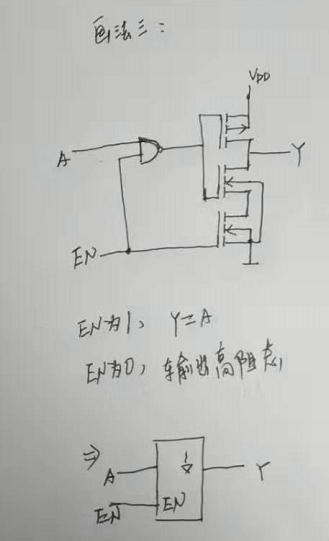 画法三：
VDD
A
Y
EN
EN为1，Y=A
EN为0，输出高阻态
⇒
A
Y
EN
EN